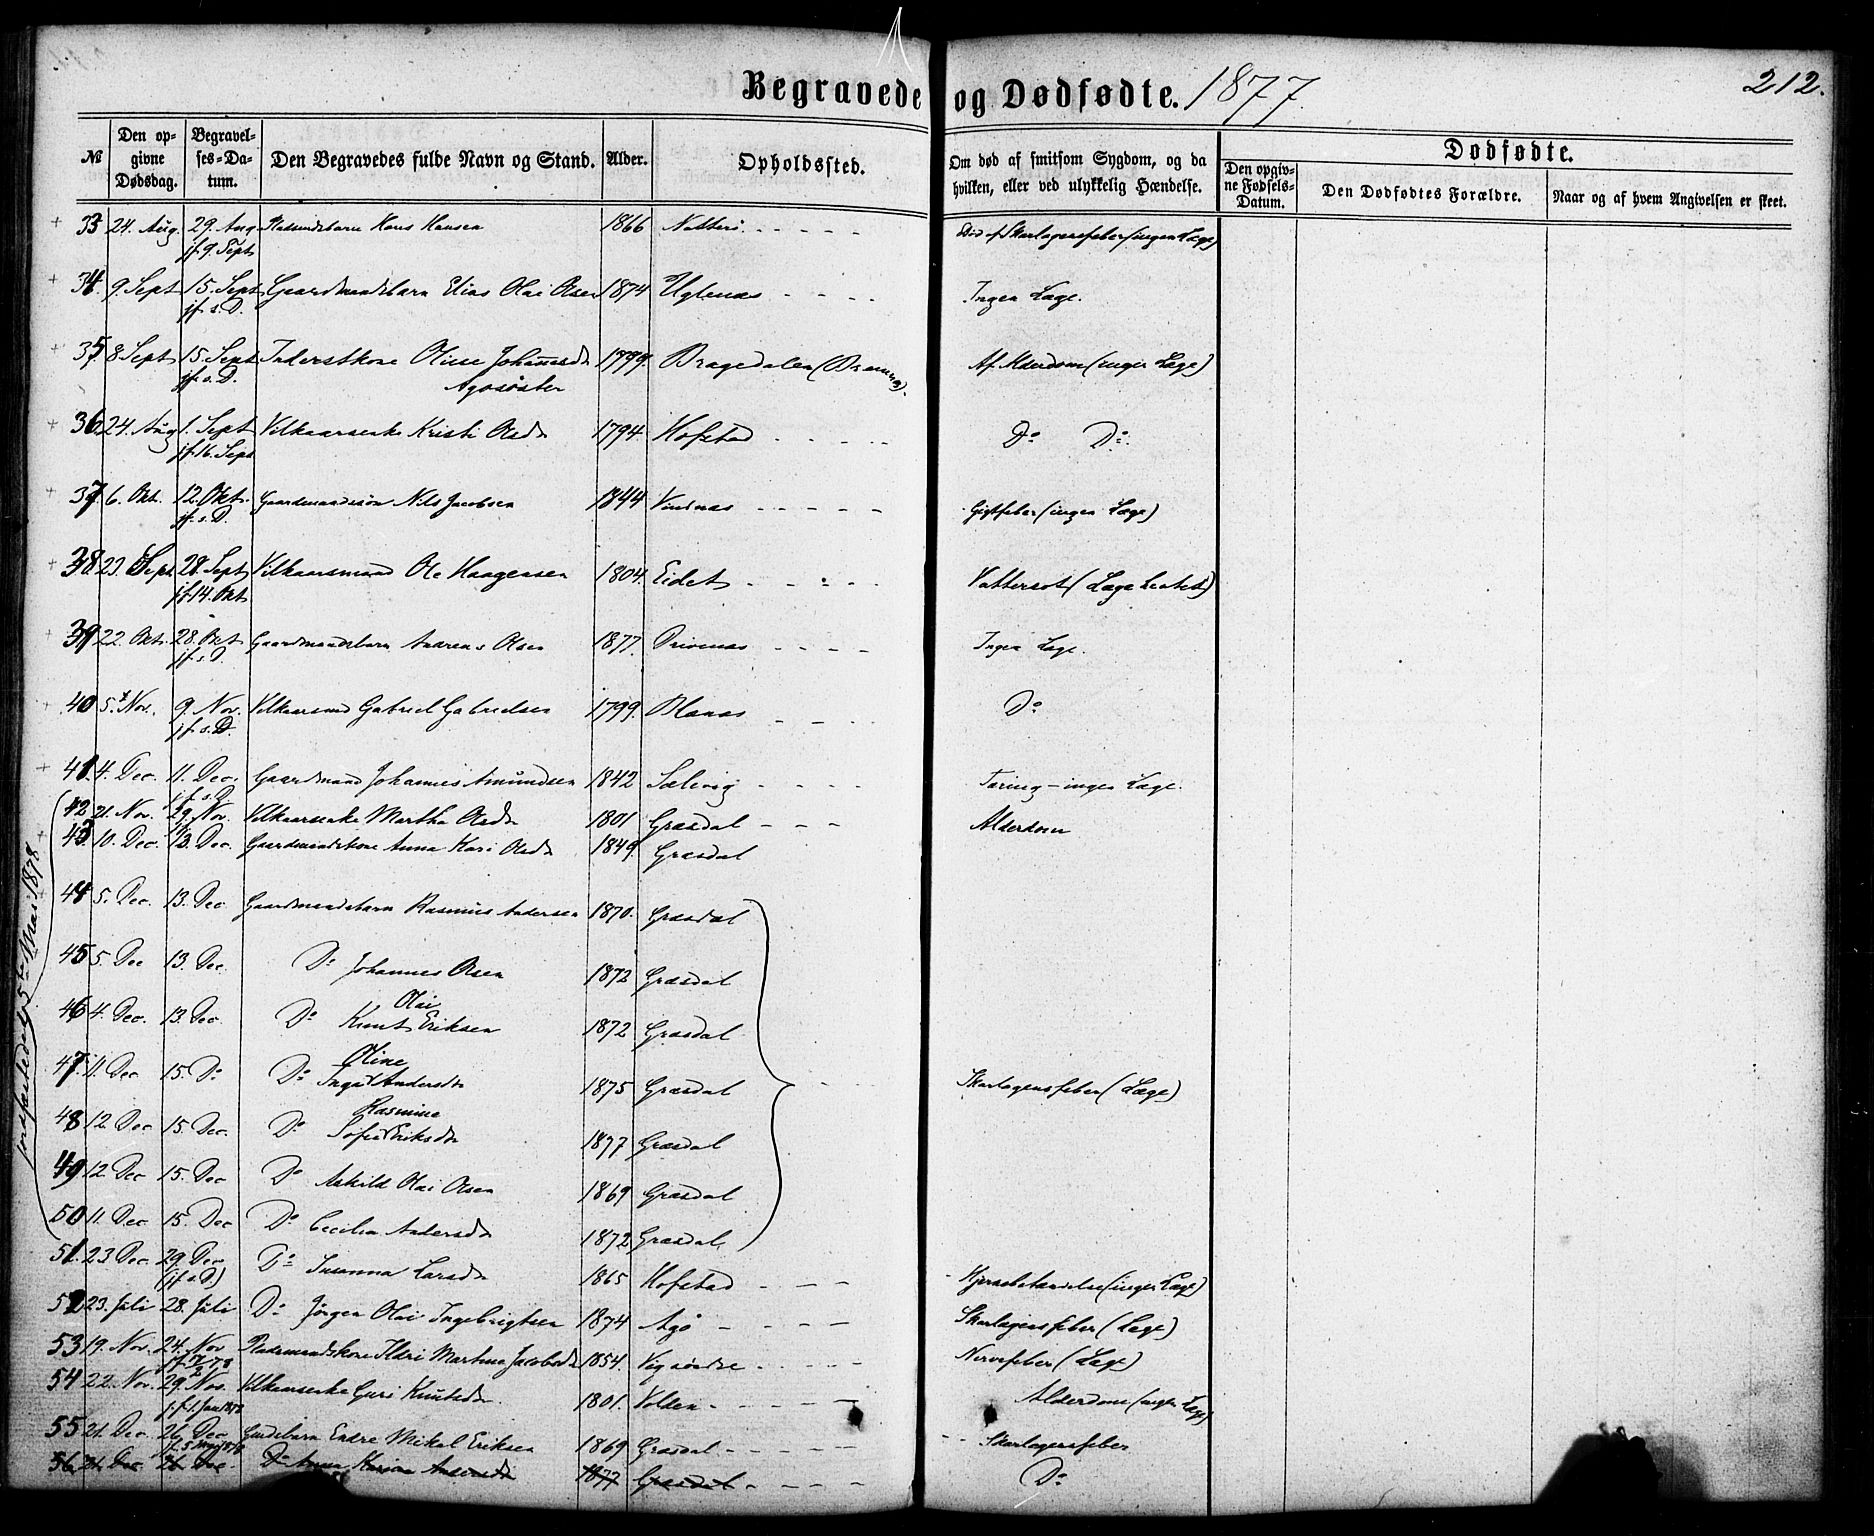 Begravede og Dødfødte. 1877. 212.
№ Den opgivne Dødsdag. Begravelses-Datum. Den Begravedes fulde Navn og Stand. Alder. Opholdssted. Om død af smitsom Sygdom, og da hvilken, eller ved ulykkelig Hændelse. Dødfødte. Den opgivne Fødsels-Datum. Den Dødfødtes Forældre. Naar og af hvem Angivelsen er skeet.
33 24. Aug. 29. Aug Hans Hansen 1866 Død af Skarlagensfeber (ingen Læge)
jf. 9. Sept
34. 9. Sept 15. Sept Gaardmandsbarn Elias Olai Olsen 1874 Uglenæs Ingen Læge.
jf. s. D.
35. 8 Sept 15. Sept Inderstkone Oline Johannesdr 1799. Dragedalen Af Alderdom (ingen Læge)
jf. s. D. Agosøster
36. 24. Aug 1. Sept Vilkaarsenke Kristi Olsdr 1794 Hofstad Do Do
jf. 16. Sept
37. 6. Okt. 12. Okt. Gaardmandssøn Nils Jacobsen 1844 Gigtfeber (ingen Læge)
jf. s. D.
38. 23. Sept. 28. Sept Vilkaarsmand Ole Haagensen 1804. Eidet Vattersot (Læge hentet)
jf. 14. Okt
39 22. Okt. 28. Okt Gaardmandsbarn Andreas Olsen 1877. Drivenæs Ingen Læge.
jf. s. D.
40 5. Nov. 9. Nov. Vilkaarsmand Gabriel Gabrielsen 1799. Blanæs Do
jf. s. D.
41. 4. Dec. 11. Dec. Gaardmand Johannes Amundsen 1842 Sælevig Tæring – ingen Læge.
jf. s. D.
42 21. Nov. 29. Nov. Vilkaarsenke Martha Olsdr 1801 Græsdal Alderdom
43. 10. Dec. 13. Dec. Gaardmandskone Anna Kari Olsdr 1849. Græsdal
44 5. Dec. 13. Dec. Gaardmandsbarn Rasmus Andersen 1870. Græsdal
45 5. Dec 13. Dec. Do Johannes Olsen 1872 Græsdal
46 4. Dec. 13. Dec. Do Knut Olai Eriksen 1872 Græsdal
47. 11. Dec 15. Do Do Inga Oline Andersdr 1875 Græsdal Skarlagensfeber (Læge)
48 12 Dec 15. Dec. Do Sofie Rasmine Eriksdr 1877 Græsdal
49 12. Dec 15. Dec Do Askild Olai Olsen 1869 Græsdal
50 11. Dec 15. Dec Do Cecilia Andersdr 1872 Græsdal
jordfæstede 5te Mai 1878
51. 23 Dec. 29. Dec Do Susanna Larsdr 1865 Hofstad Hjernebetændelse (ingen Læge)
(jf. s. D.)
52 23. Juli 28. Juli Do Jørgen Olai Ingebrigtsen 1874 Agø Skarlagensfeber (Læge)
53 19. Nov. 24. Nov Ildri Martina Jacobsdr 1854. Vig søndre Nervefeber (Læge)
54 22. Nov. 29. Nov. Vilkaarsenke Guri Knutsdr 1801. Volden Alderdom (ingen Læge)
jf. 1. Jan 1878
55 21. Dec. 26. Dec Endre Mikal Eriksen 1869 Græsdal Skarlagensfeber
jf. 5 Mai 1878
56 21 Dec 26 Dec. Do Anna Karina 1877 Græsdal Do